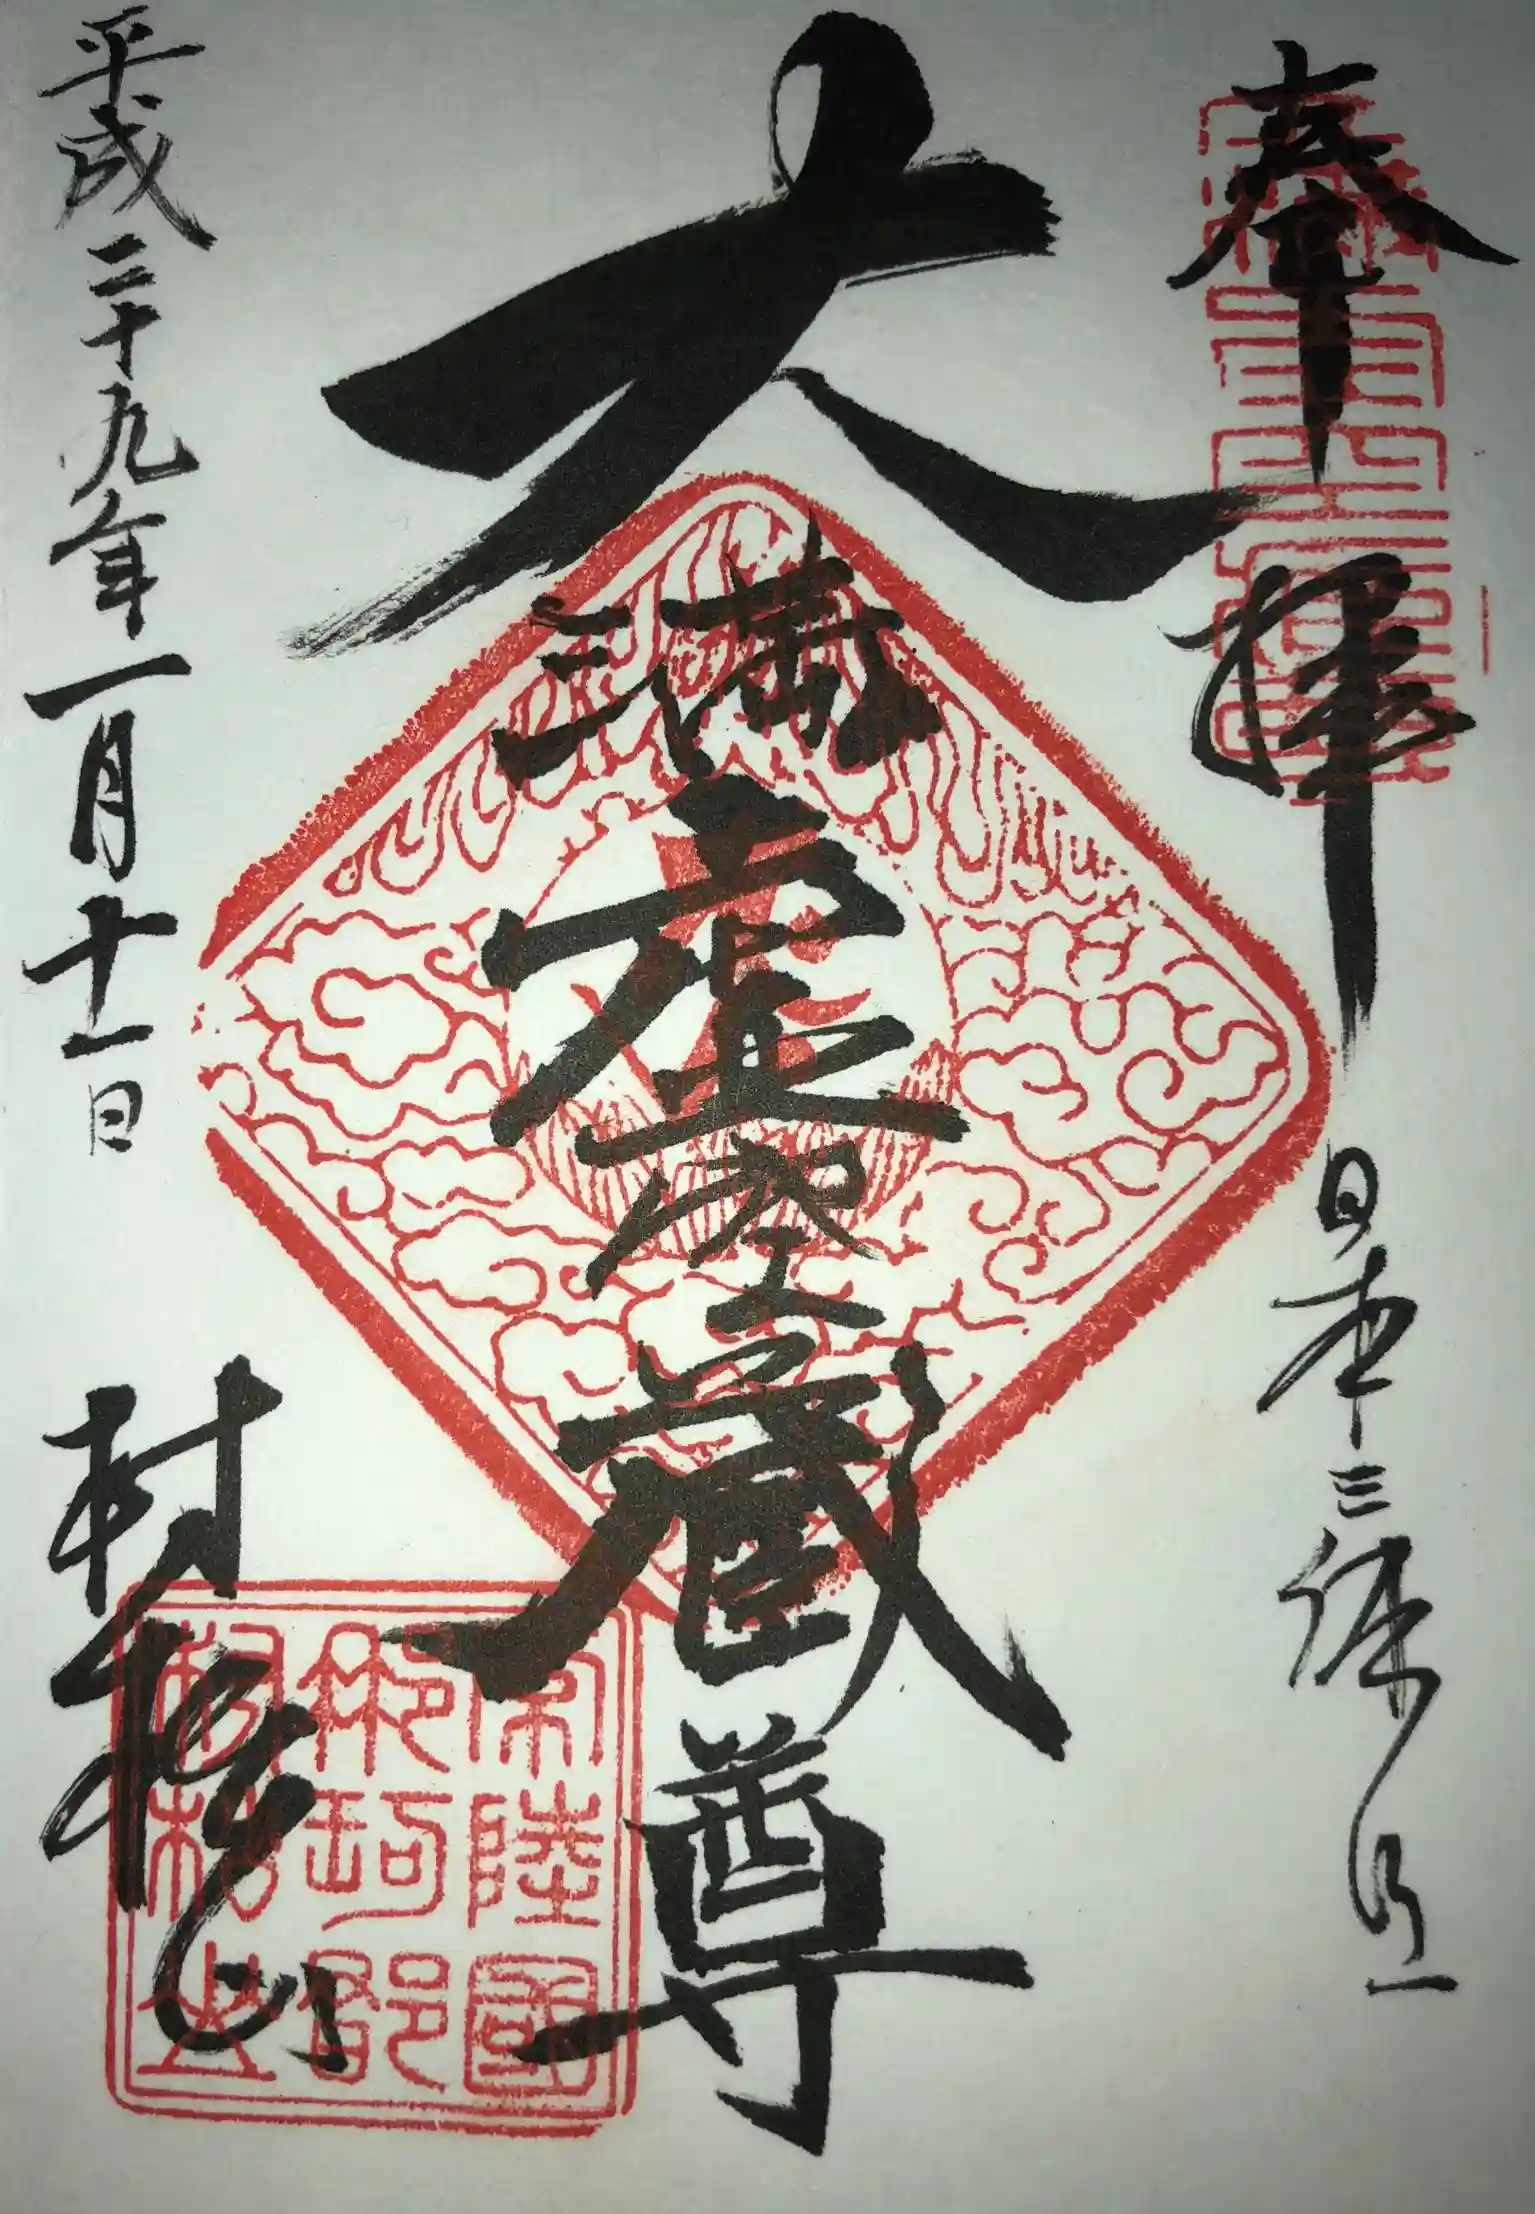 奉拝
日本三体之一
大満虚空蔵尊
平成二十九年一月十一日
村松山
常陸國
那珂郡
村松山